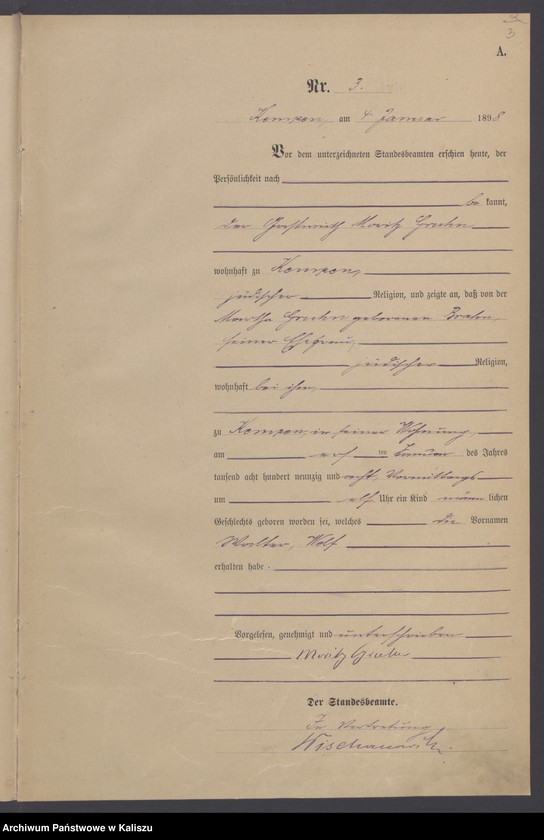 3
A.
Nr. 3.
Kempen, am 4 Januar 1898
Vor dem unterzeichneten Standesbeamten erschien heute, der
Persönlichkeit nach
be kannt,
der Gastwirth Moritz
wohnhaft zu Kempen,
jüdischer Religion, und zeigte an, daß von der
Martha geborenen
seiner Ehefrau,
jüdischer Religion,
wohnhaft bei ihm,
zu Kempen, in seiner Wohnung,
am ten Januar des Jahres
tausend acht hundert neunzig und acht, Vormittags
um elf Uhr ein Kind männ lichen
Geschlechts geboren worden sei, welches die Vornamen
Walter, Wolf
erhalten habe.
Vorgelesen, genehmigt und unterschrieben
Moritz
Der Standesbeamte.
In Vertretung
Archiwum Państwowe w Kaliszu